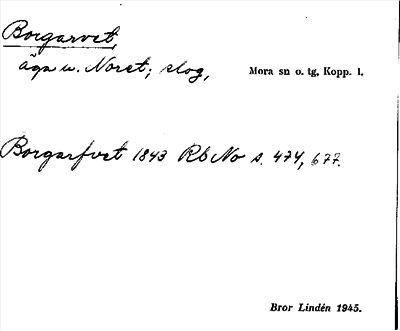 Borgarvet,
äga u. Noret; skog, Mora sn o. tg, Kopp. l.
Borgarfvet 1843 Rb No s. 474, 677.
Bror Lindén 1945.